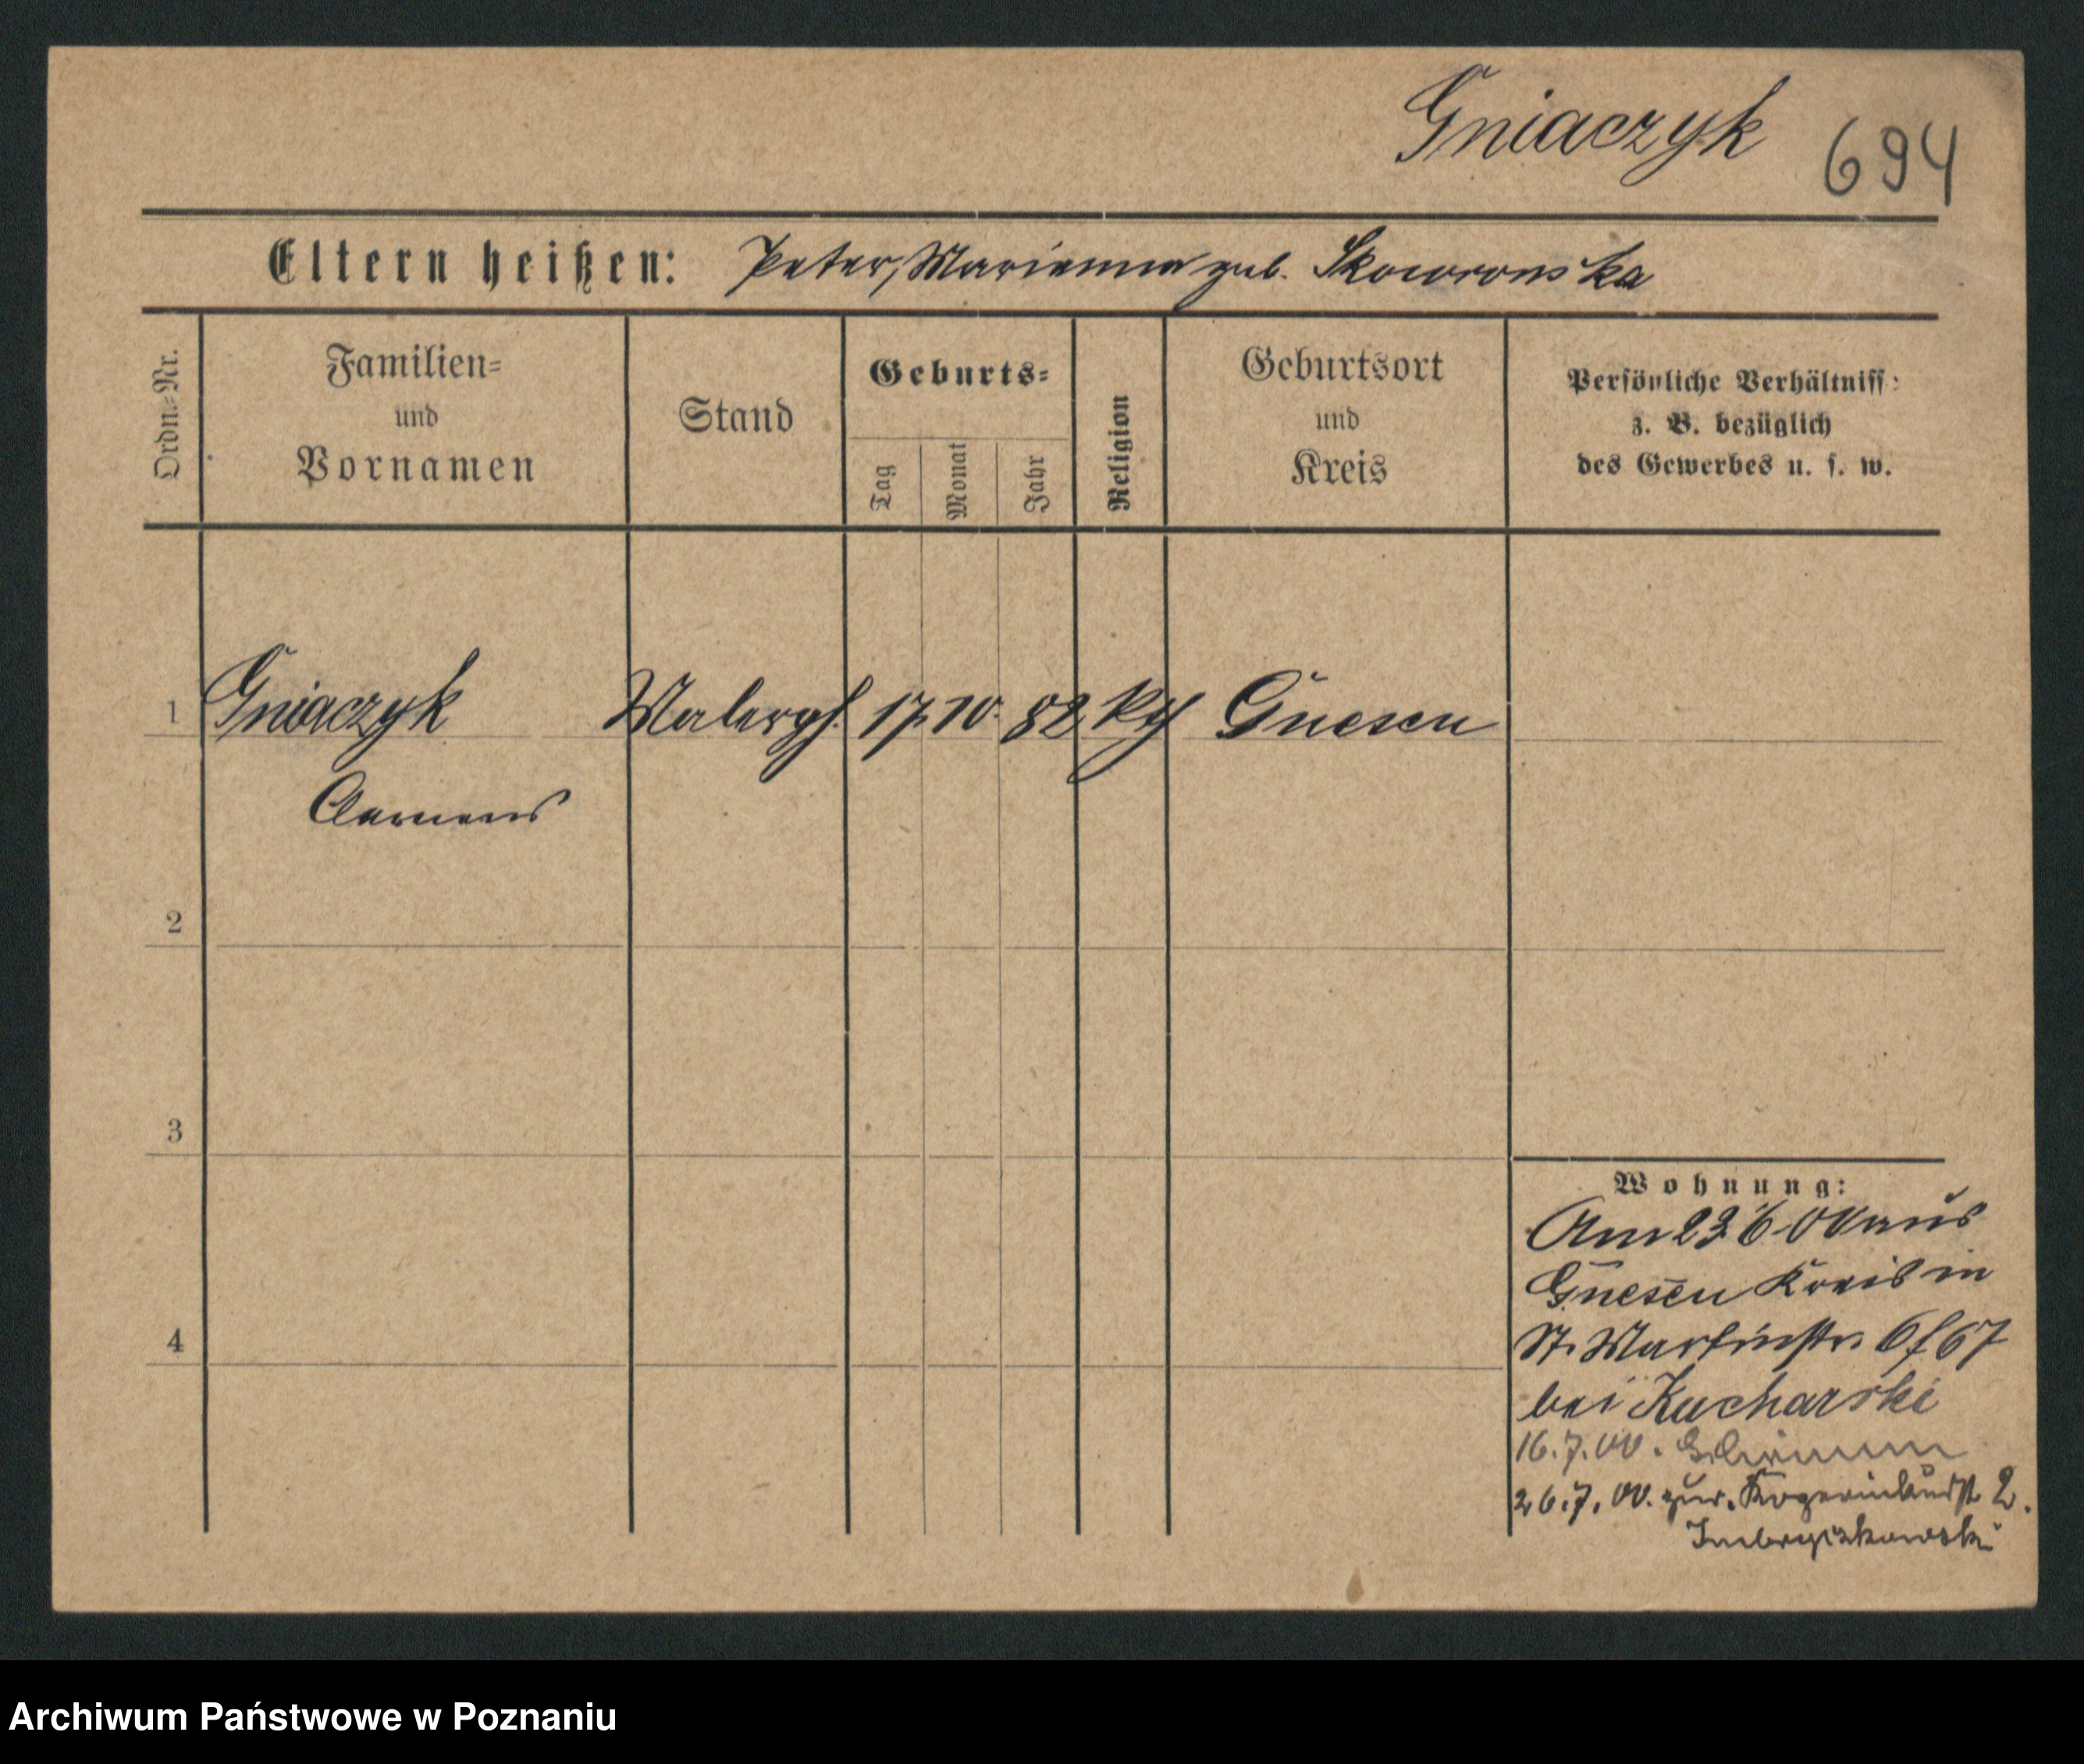 Gniaczyk
694
Eltern heißen: Peter, Marianna geb. Skowronska
Ordn.-Nr.
Familien-
und
Vornamen
Stand
Geburts-
Tag
Monat
Jahr
Religion
Geburtsort
und
Kreis
Persönliche Verhältniss:
z. B. bezüglich
des Gewerbes u. s. w.
1 Gniaczyk Malergh. 17. 10. 82 kth Gnesen
Clemens
2
3
4
Wohnung:
Am 23 6 00 aus
Gnesen Kreis in
St. Martinstr. 67
bei Kucharski
16.7.00.
26.7.00. zur. 2.
Archiwum Państwowe w Poznaniu